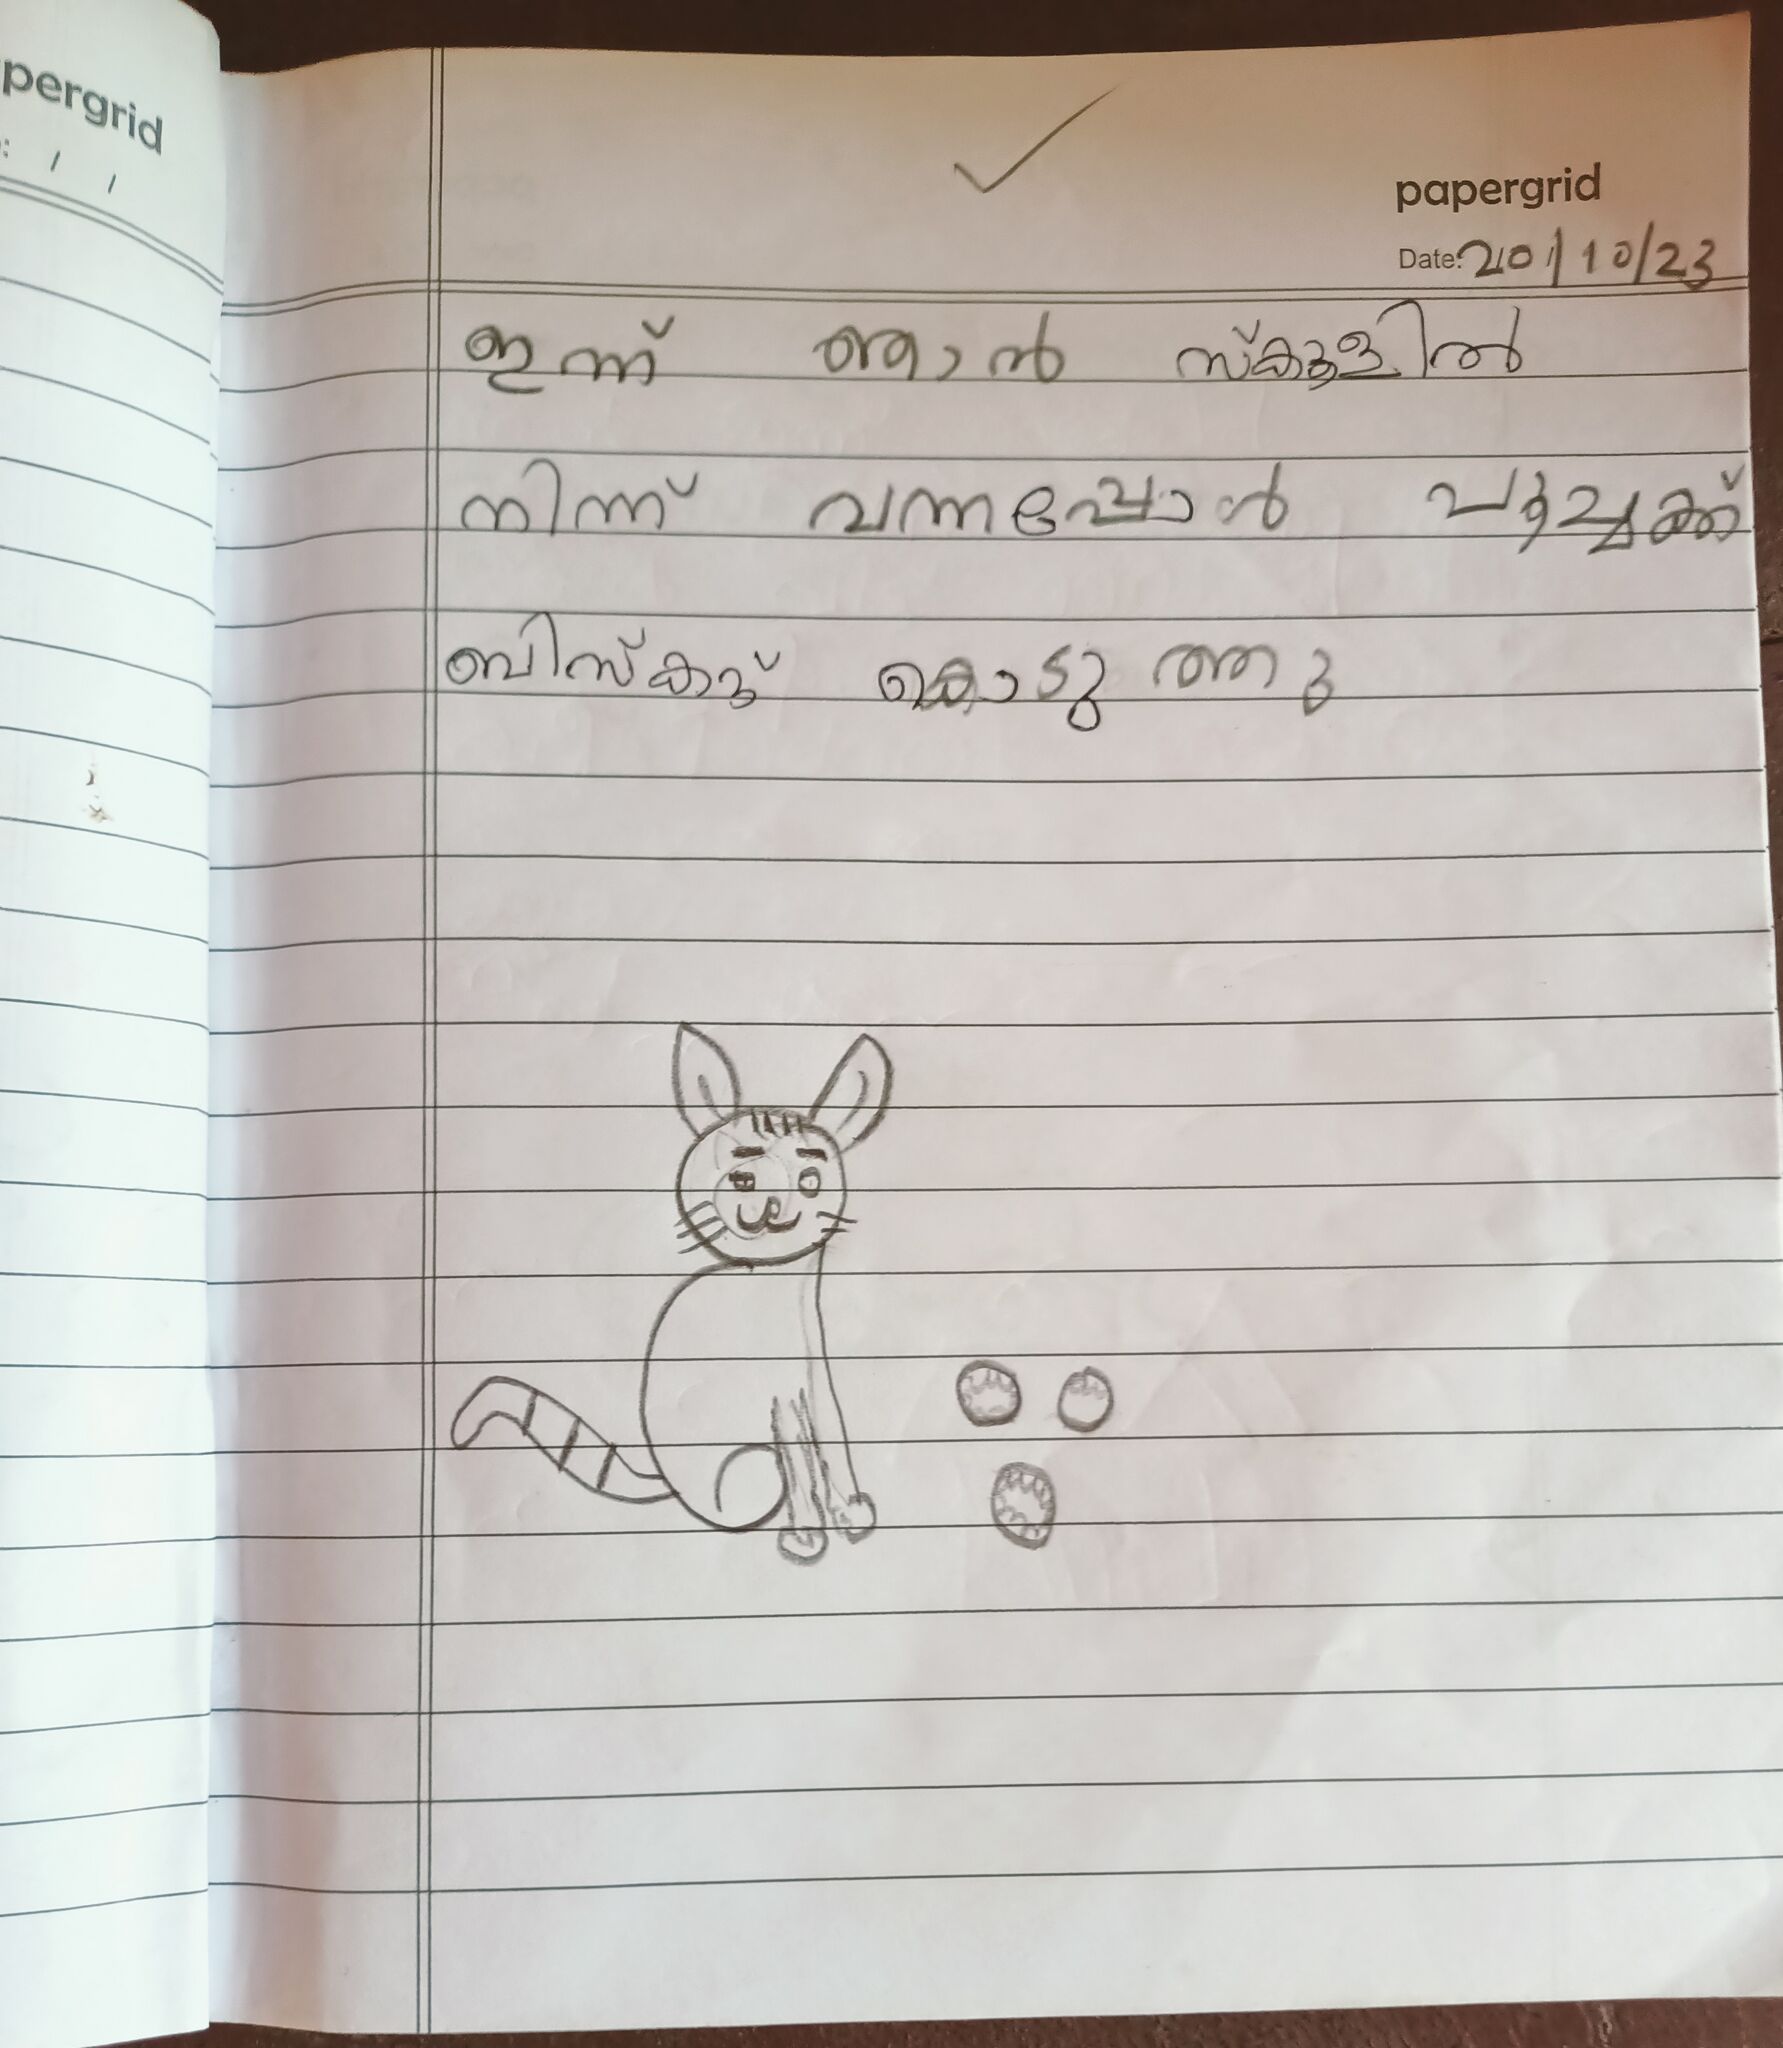 pergrid
: / /
papergrid
Date: 20/10/23
ഇന്ന് ഞാൻ സ്കൂളിൽ
നിന്ന് വന്നപ്പോൾ പൂച്ചക്ക്
ബിസ്കറ്റ് കൊടുത്തു